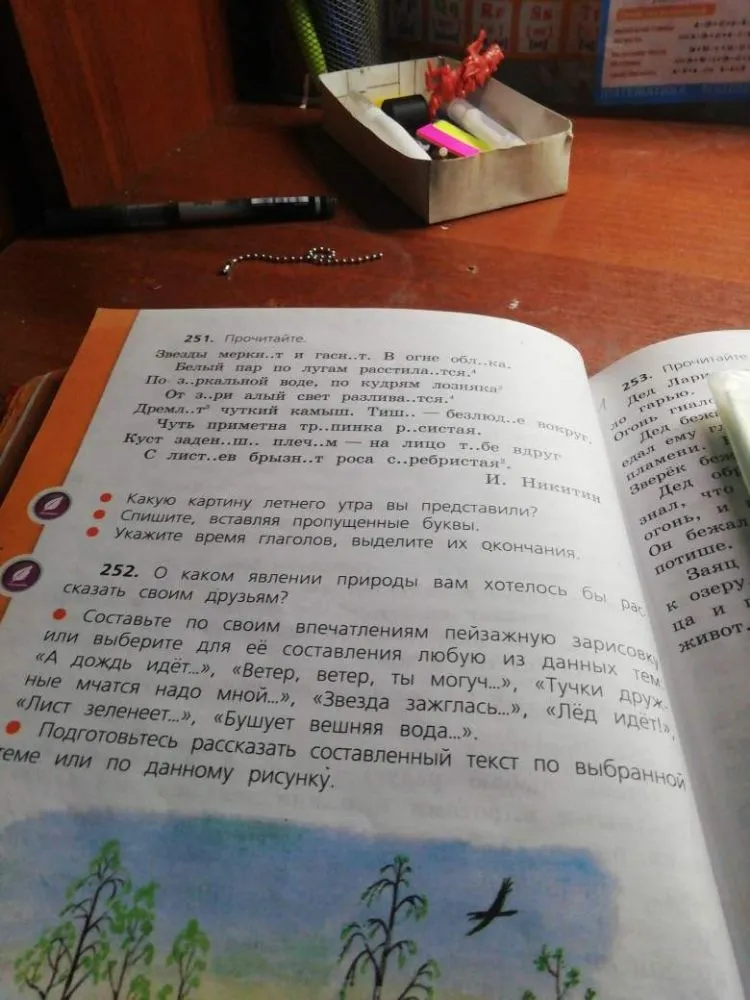 251. Прочитайте.
Звезды меркн..т и гасн..т. В огне обл..ка.
Белый пар по лугам расстила..тся.⁴
По з..ркальной воде, по кудрям лозняка²
От з..ри алый свет разлива..тся.⁴
Дремл..т² чуткий камыш. Тиш.. — безлюд..е вокруг.
Чуть приметна тр..пинка р..систая.
Куст заден..ш.. плеч..м — на лицо т..бе вдруг
С лист..ев брызн..т роса с..ребристая².
И. Никитин
Какую картину летнего утра вы представили?
Спишите, вставляя пропущенные буквы.
Укажите время глаголов, выделите их окончания.
252. О каком явлении природы вам хотелось бы рас-
сказать своим друзьям?
Составьте по своим впечатлениям пейзажную зарисовку
или выберите для её составления любую из данных тем:
«А дождь идёт...», «Ветер, ветер, ты могуч...», «Тучки друж-
ные мчатся надо мной...», «Звезда зажглась...», «Лёд идёт!»,
«Лист зеленеет...», «Бушует вешняя вода...».
Подготовьтесь рассказать составленный текст по выбранной
теме или по данному рисунку.
253. Прочитайте
Дед Лари
ло гарью.
Огонь гнало
Дед бежа
едал ему гл
пламени.
Зверёк беж
Дед обр
знал, что
огонь, и
Он бежал
потише.
Заяц
к озеру
ца и п
живот.
Rr
Ss